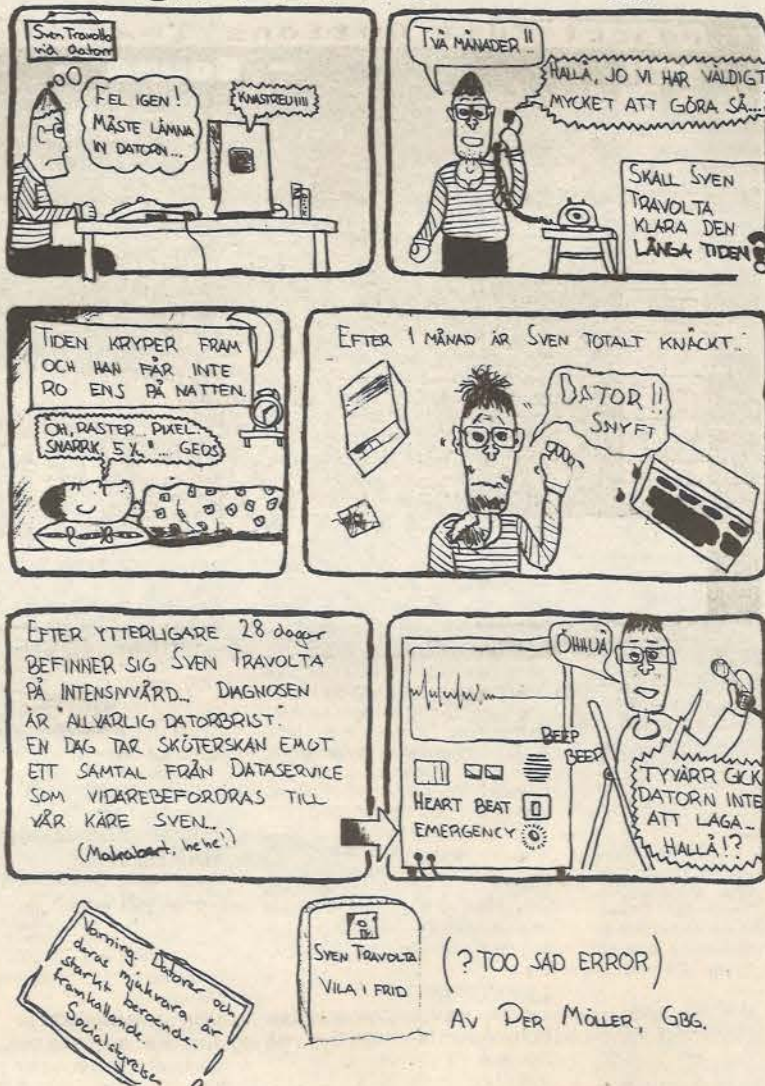 Sven Travolta
vid datorn
FEL IGEN!
MÅSTE LÄMNA
IN DATORN...
KNASTREU!!!!
TVÅ MÅNADER!!
HALLÅ, JO VI HAR VÄLDIGT
MYCKET ATT GÖRA SÅ...
SKALL SVEN
TRAVOLTA
KLARA DEN
LÅNGA TIDEN?
TIDEN KRYPER FRAM
OCH HAN FÅR INTE
RO ENS PÅ NATTEN.
ÖH, RASTER... PIXEL
SNARRK, 5 ¼"... GEOS
EFTER 1 MÅNAD ÄR SVEN TOTALT KNÄCKT...
DATOR!!
SNYFT
EFTER YTTERLIGARE 28 dagar
BEFINNER SIG SVEN TRAVOLTA
PÅ INTENSIVVÅRD... DIAGNOSEN
ÄR "ALLVARLIG DATORBRIST".
EN DAG TAR SKÖTERSKAN EMOT
ETT SAMTAL FRÅN DATASERVICE
SOM VIDAREBEFORDRAS TILL
VÅR KÄRE SVEN...
(Makabert, hehe!)
ÖHHUÄ
BEEP
BEEP
HEART BEAT
EMERGENCY
TYVÄRR GICK
DATORN INTE
ATT LAGA...
HALLÅ!?
Varning. Datorer och
deras mjukvara är
starkt beroende-
framkallande.
Socialstyrelsen
SVEN TRAVOLTA
VILA I FRID
(? TOO SAD ERROR)
AV PER MÖLLER, GBG.